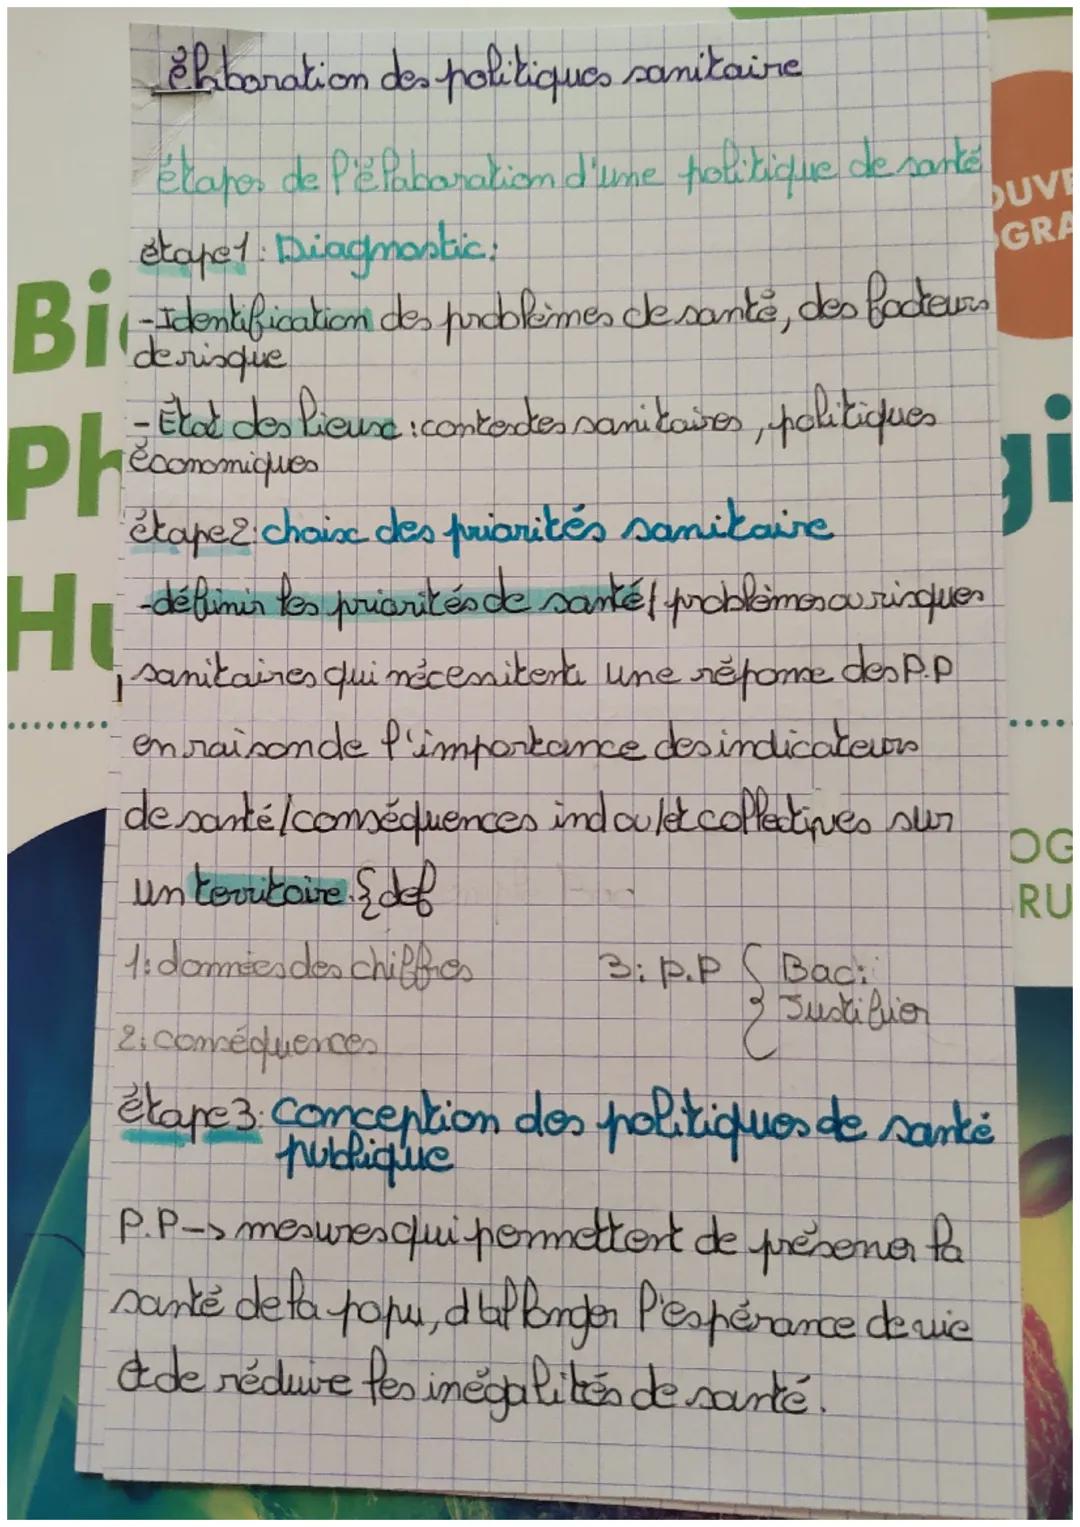 élaboration des politiques sanitaire
étapes de l'élaboration d'une politique de santé
étape1: Diagnostic:
-Identification des problèmes de santé, des facteurs
de risque
-État des lieux: contextes sanitaires, politiques
économiques
étape2: choix des priorités sanitaire
-définir les priorités de santé/problèmes ou risques
sanitaires qui nécessitent une réponse des P.P
en raison de l'importance des indicateurs
de santé/conséquences ind ou/et collectives sur
un territoire. { def
1: données des chiffres
3: P.P { Bac:
Justifier
2: conséquences
étape3: Conception des politiques de santé
publique
P.P-> mesures qui permettent de préserver la
santé de la popu, d'allonger l'espérance de vie
et de réduire les inégalités de santé.
Bi
Ph
gi
Hu
OUVE
GRA
OG
RU